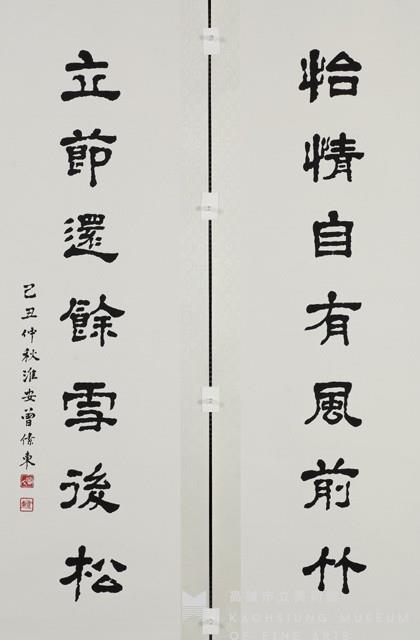 怡情自有風前竹
立節還餘雪後松
己丑仲秋淮安曾傃東
高雄市立美術館
KAOHSIUNG MUSEUM
OF FINE